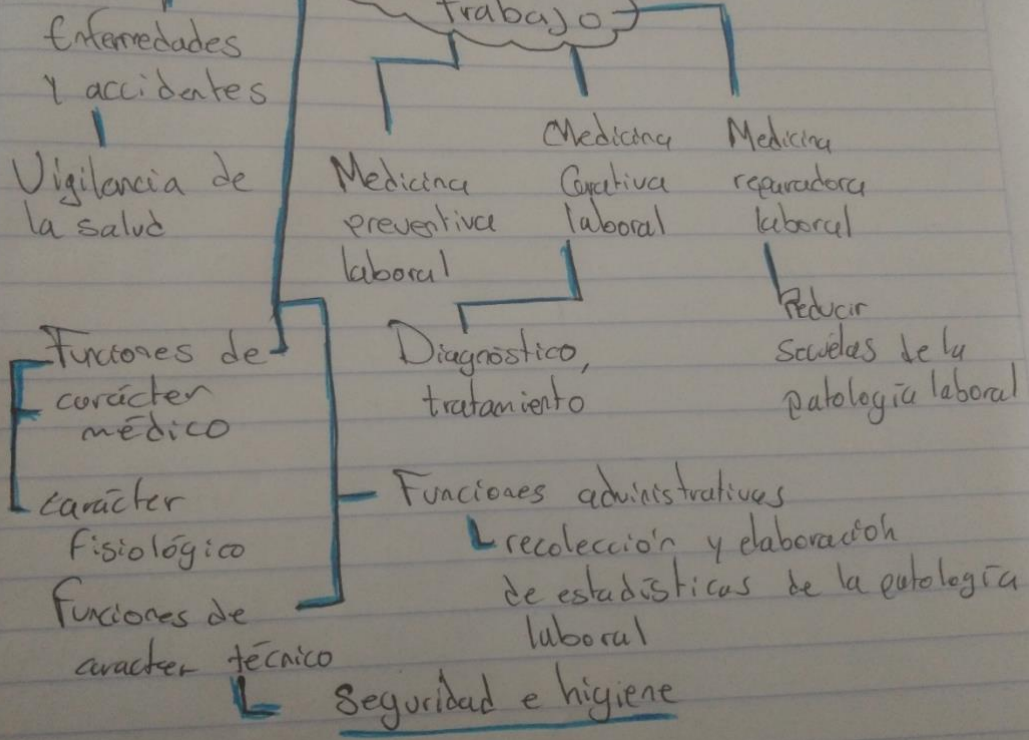 trabajo
Enfermedades
y accidentes
Vigilancia de
la salud
Medicina
preventiva
laboral
Medicina
Curativa
laboral
Medicina
reparadora
laboral
Diagnóstico,
tratamiento
Reducir
secuelas de la
patología laboral
Funciones de
carácter
médico
carácter
fisiológico
Funciones de
caracter técnico
Seguridad e higiene
Funciones administrativas
recolección y elaboración
de estadísticas de la patología
laboral